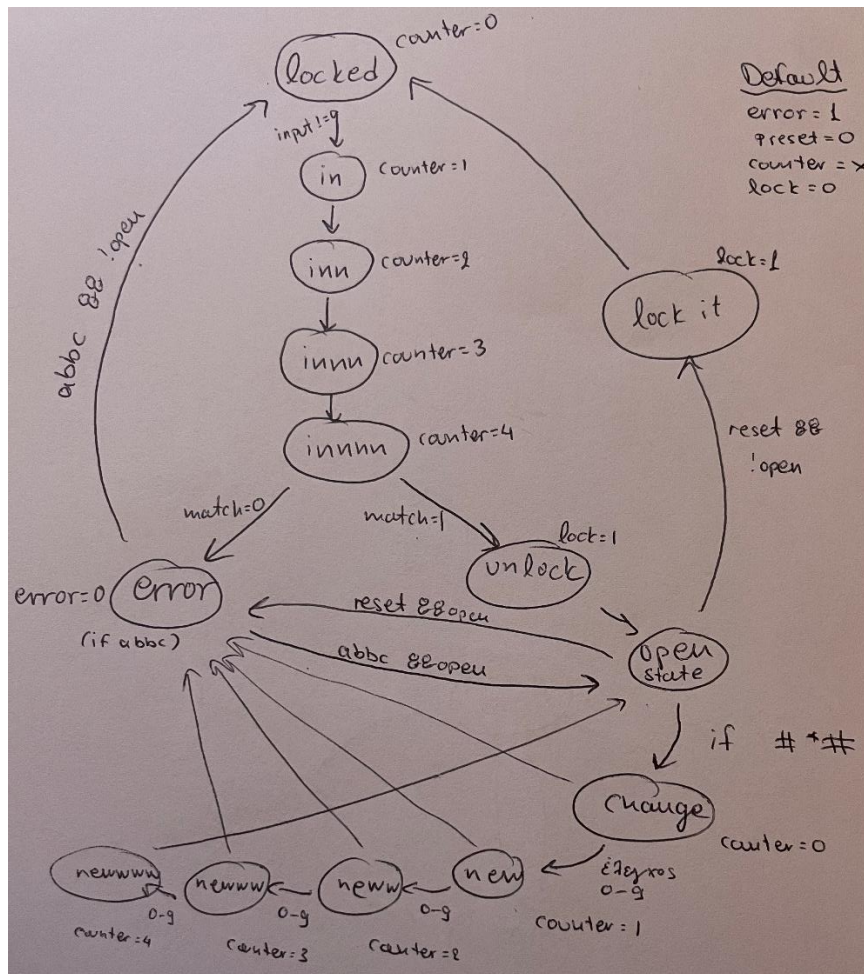 counter=0
locked
Default
error = 1
preset=0
counter = x
lock = 0
input!=9
in
counter=1
inn
counter=2
innn
counter=3
innnn
counter=4
abbc && !open
lock=1
lock it
reset &&
!open
match=0
match=1
lock=1
unlock
error=0
error
(if abbc)
reset && open
abbc && open
open
state
if #*#
change
counter=0
έλεγχος
0-9
new
counter=1
0-9
neww
counter=2
0-9
newww
counter=3
0-9
newwww
counter=4